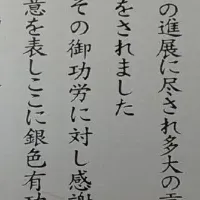 の進展に尽され多大の
をされました
その御功労に対し感謝
意を表しここに銀色有功